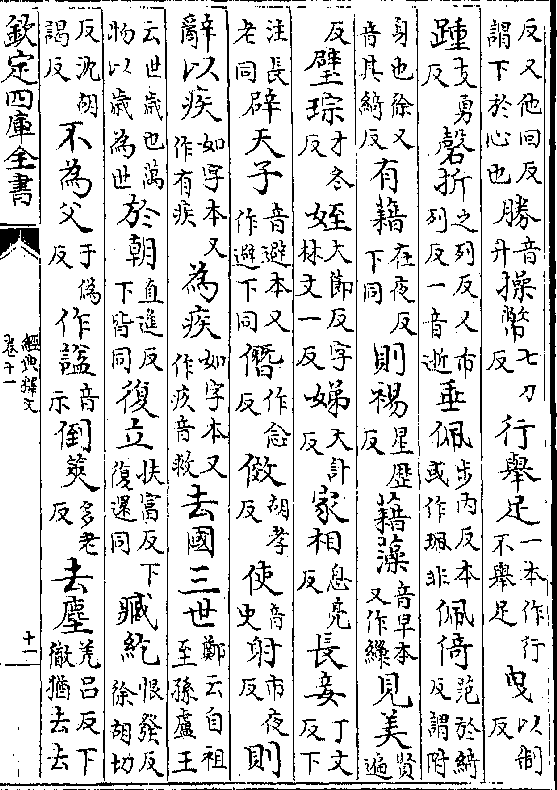 反又他回反謂下於心也勝音升操幣七刀反行舉足一本作行不舉足曳以制反
踵支勇反磬折之列反又市列反一音逝垂佩步内反本或作珮非佩倚范於綺反謂附
身也徐又音其綺反有藉在夜反下同則裼星歷反藉藻音早本又作繅見美賢遍
反璧琮才冬反姪大節反字林丈一反娣大計反家相息亮反長妾丁丈反下
注長老同辟天子音避本又作避下同僭作念反傚胡孝反使音史射市夜反則
辭以疾如字本又作有疾為疾如字本又作疚音救去國三世鄭云自祖至孫盧王
云世歲也萬物以歲為世於朝直遥反下皆同復立扶富反下復還同臧紇恨發反徐胡切
反沈胡謁反不為父于偽反作諡音示倒筴多老反去塵羌呂反下徹猶去去
欽定四庫全書
經典釋文
卷十一
十一